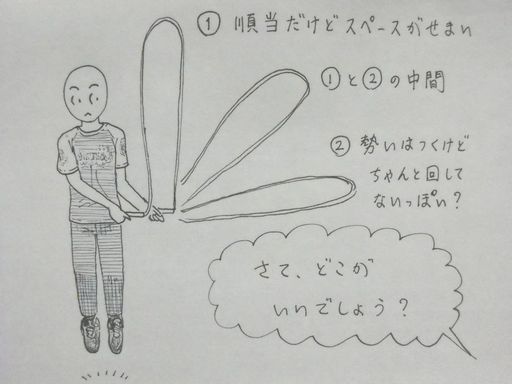 ① 順当だけどスペースがせまい
①と②の中間
② 勢いはつくけど
ちゃんと回して
ないっぽい？
さて、どこが
いいでしょう？